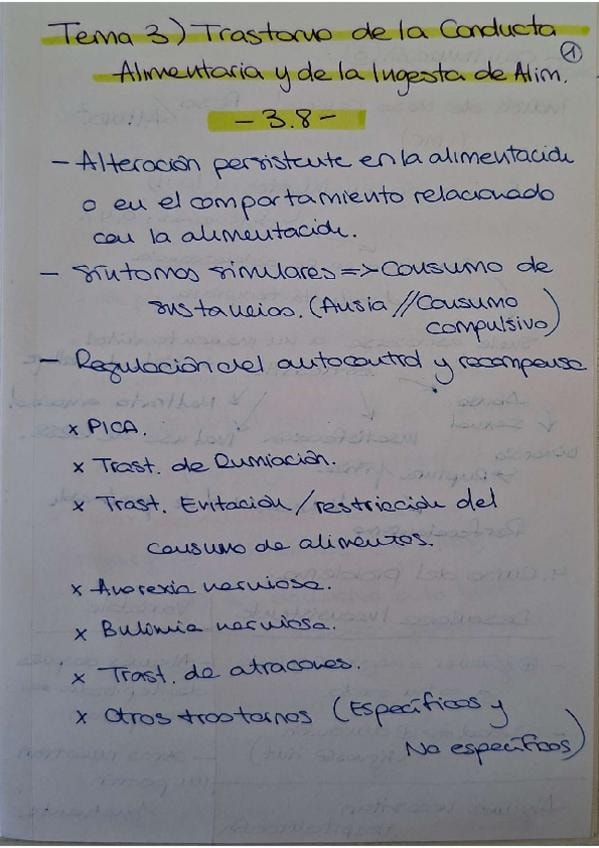 Tema 3) Trastorno de la Conducta
Alimentaria y de la Ingesta de Alim.
1
- 3.8 -
- Alteración persistente en la alimentación
o en el comportamiento relacionado
con la alimentación.
- Síntomas similares => Consumo de
sustancias. (Ansia // Consumo
compulsivo)
- Regulación del autocontrol y recompensa
x PICA.
x Trast. de Rumiación.
x Trast. Evitación/restricción del
consumo de alimentos.
x Anorexia nerviosa.
x Bulimia nerviosa.
x Trast. de atracones.
x Otros trastornos (Específicos y
No específicos)